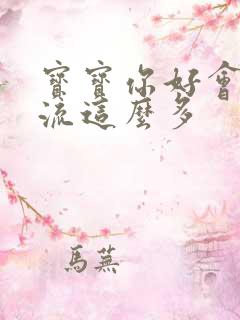 寶寶你好會
流這麼多
馬蕪